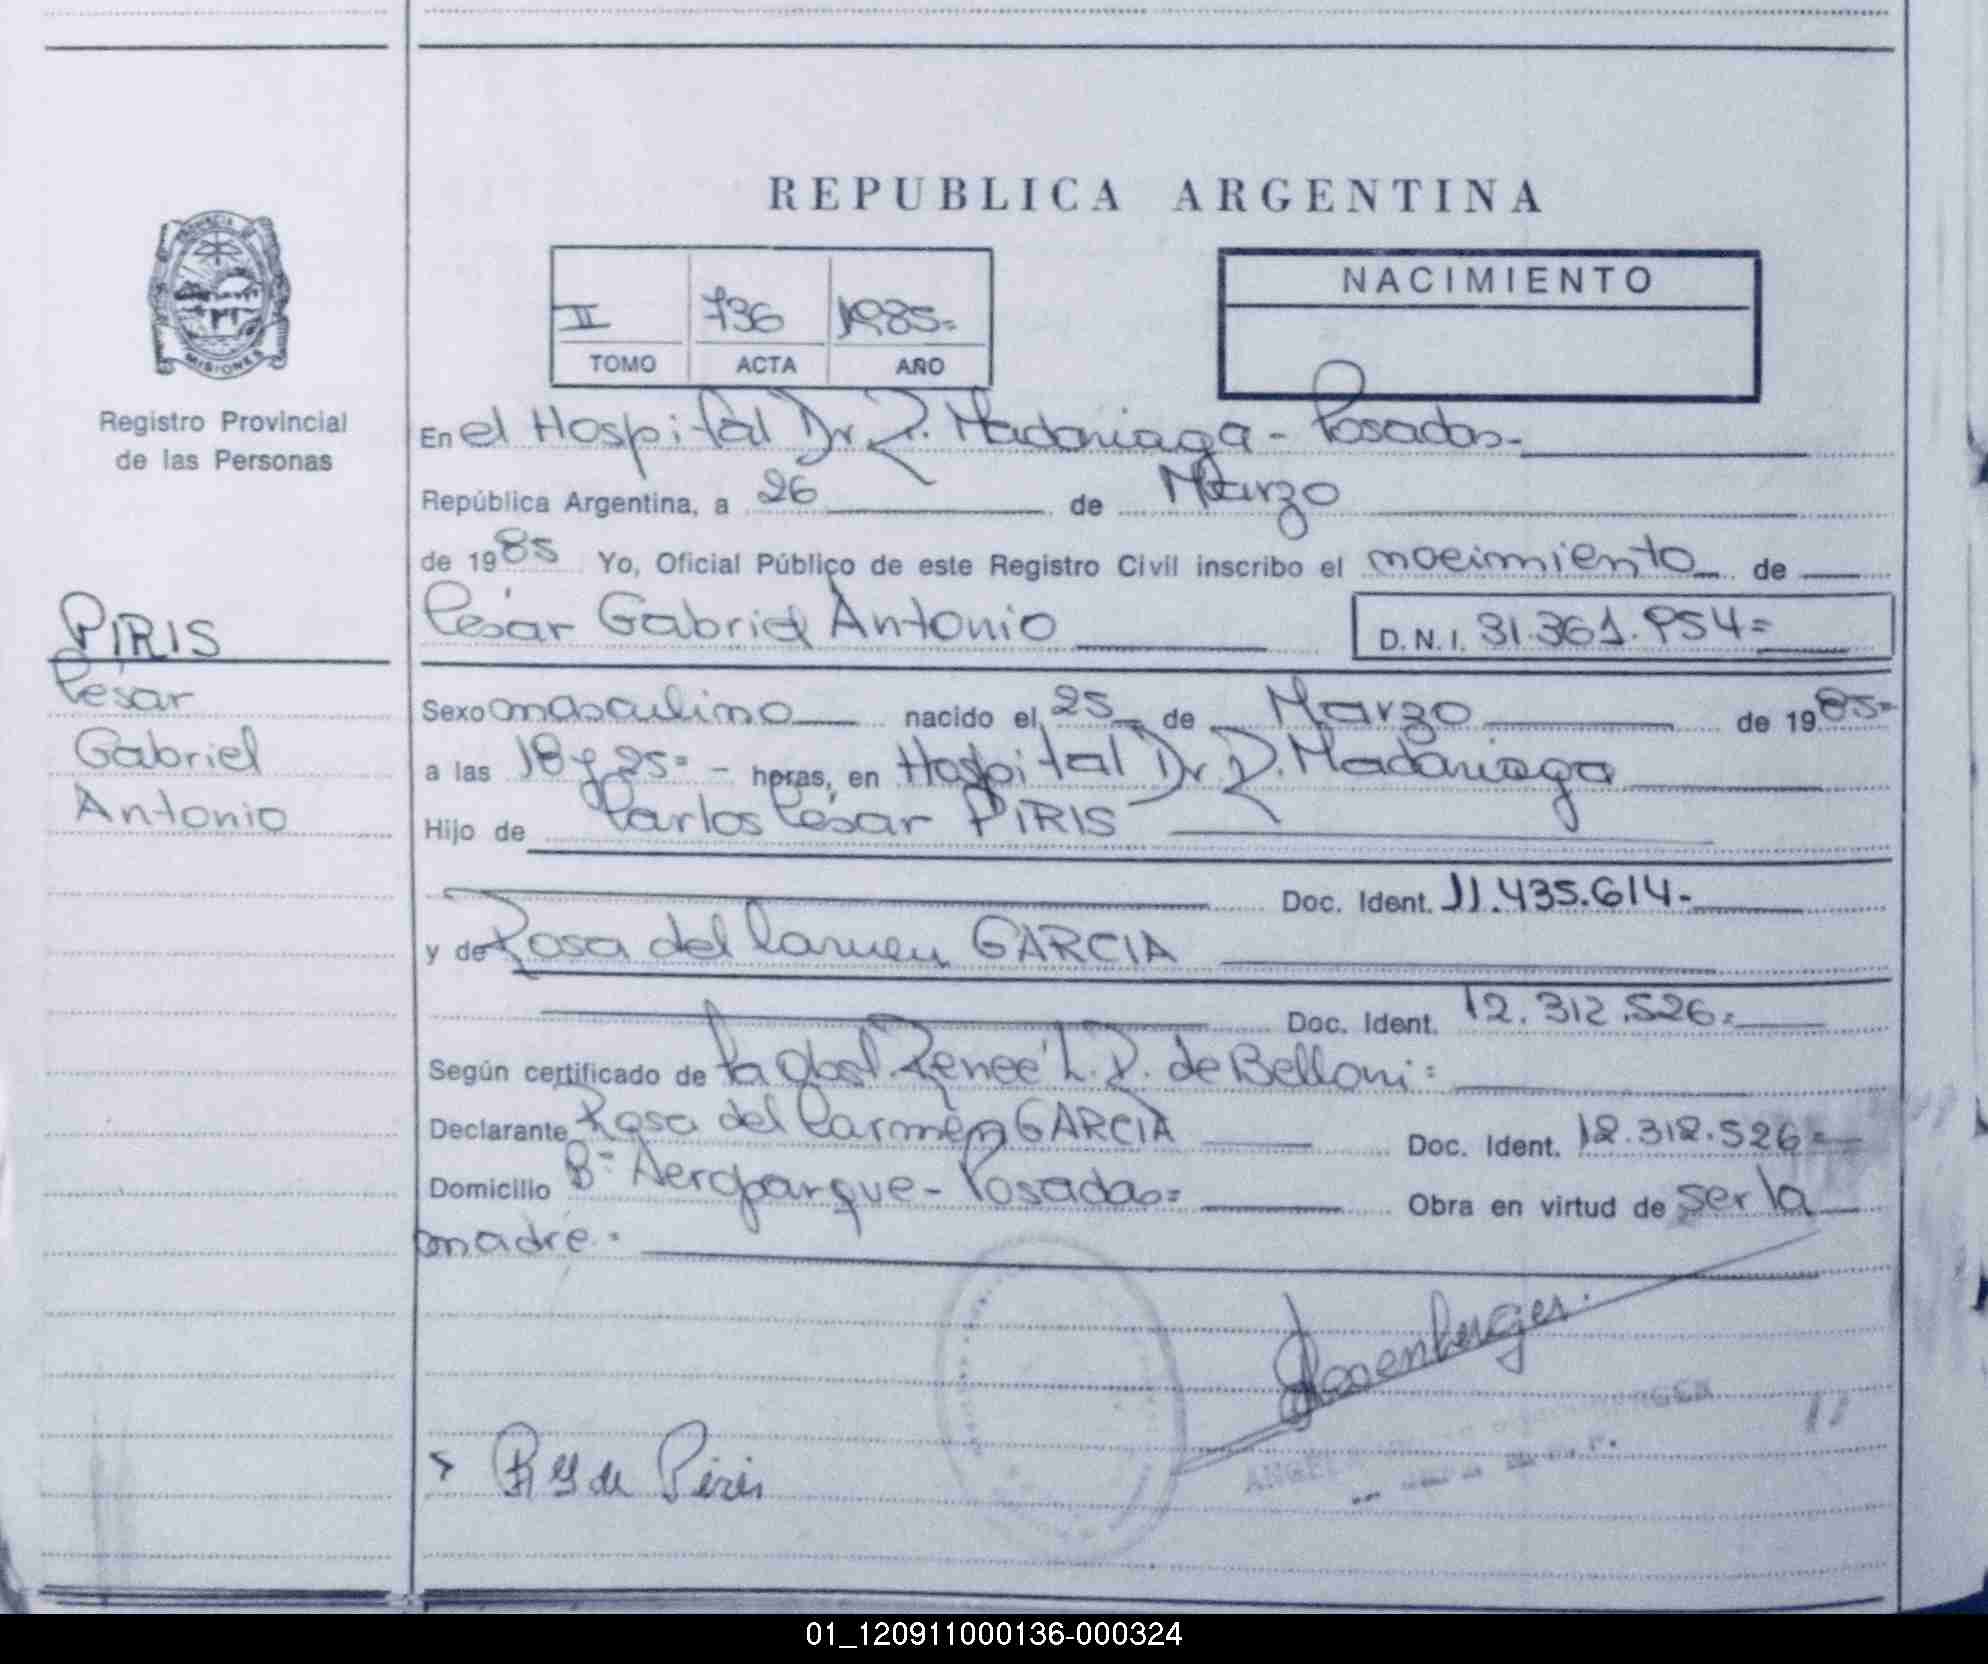 REPUBLICA ARGENTINA
PROVINCIA DE
MISIONES
Registro Provincial
de las Personas
II 736 1985=
TOMO ACTA AÑO
NACIMIENTO
En el Hospital Dr R. Madariaga - Posadas-
República Argentina, a 26 de Marzo
de 1985 Yo, Oficial Público de este Registro Civil inscribo el nacimiento de
César Gabriel Antonio D.N.I. 31.361.954=
PIRIS
César
Gabriel
Antonio
Sexo masculino nacido el 25 de Marzo de 1985=
a las 18 y 25= - horas, en Hospital Dr. R. Madariaga
Hijo de Carlos César PIRIS
Doc. Ident. 11.435.614-
y de Rosa del Carmen GARCIA
Doc. Ident. 12.312.526=
Según certificado de la obst Reneé L. R. de Belloni=
Declarante Rosa del Carmen GARCIA Doc. Ident. 12.312.526=
Domicilio Bº Aeroparque - Posadas= Obra en virtud de ser la
madre.=
de Piris
01_120911000136-000324